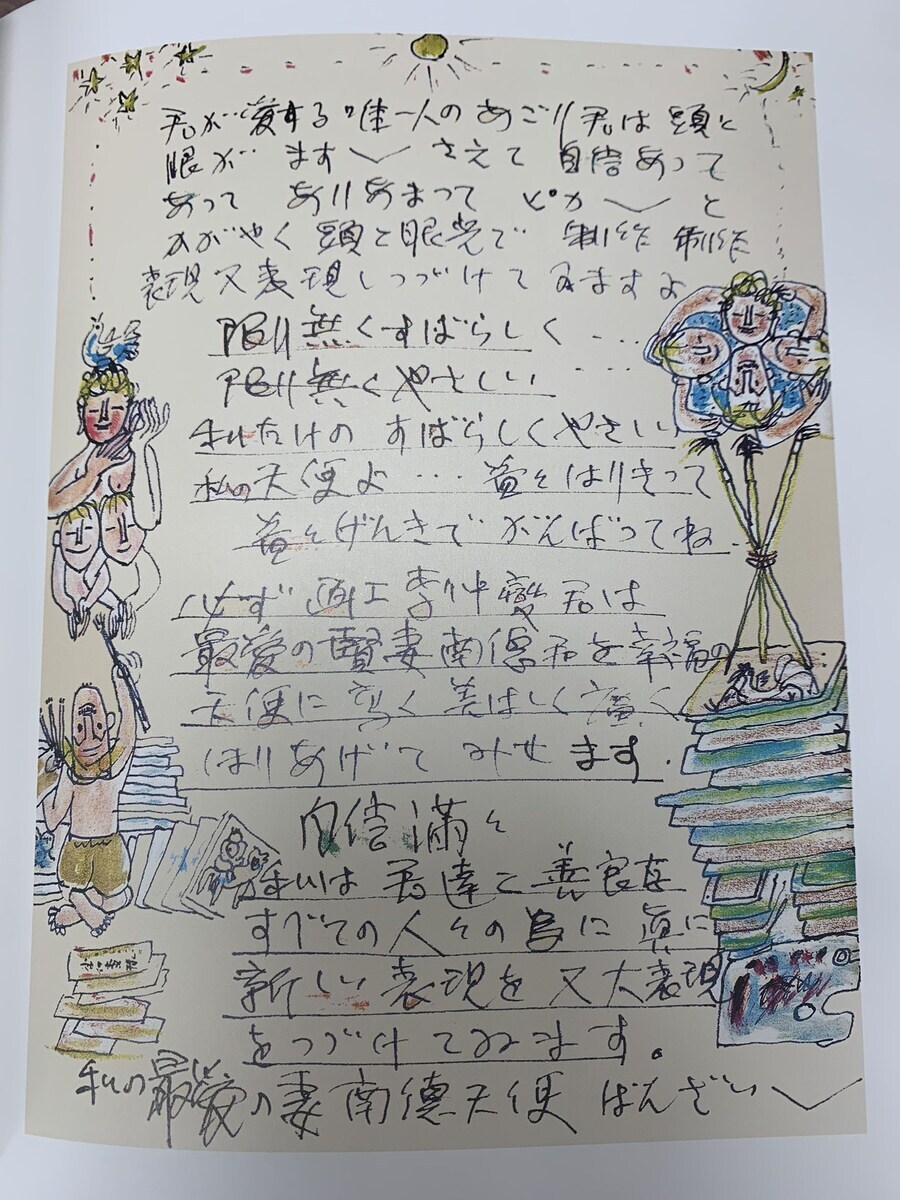 君が愛する唯一人のあごり君は頭と
眼がます〱さえて自信あって
あってありあまってピカ〱と
かがやく頭と眼光で制作制作
表現又表現しつづけてみますよ
限り無くすばらしく・・・
限り無くやさしい・・・
私だけのすばらしくやさしい
私の天使よ・・・益々はりきって
益々げんきでがんばってね.
必ず画工李仲燮君は
最愛の賢妻南徳君を幸福の
天使に高く美しく広く
はりあげてみせます.
自信満々
私は君達と善良な
すべての人々の為に真に
新しい表現を又大表現
をつづけてみます。
私の最愛の妻南德天使ばんざい〱